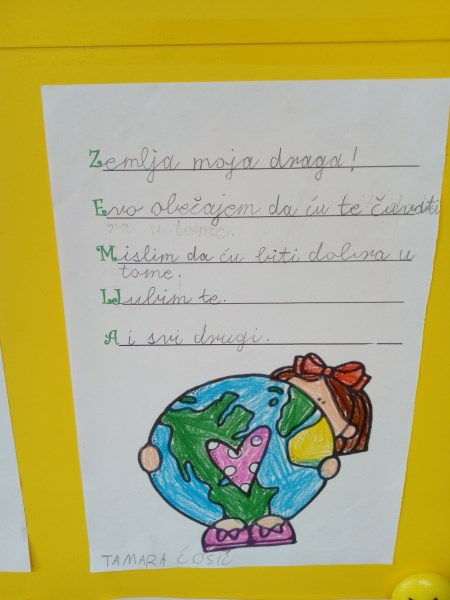 Zemlja moja draga!
Evo obečajem da ću te čuvati
Mislim da ću biti dobra u
tome.
LJubim te.
A i svi drugi.
TAMARA ĆOSIĆ